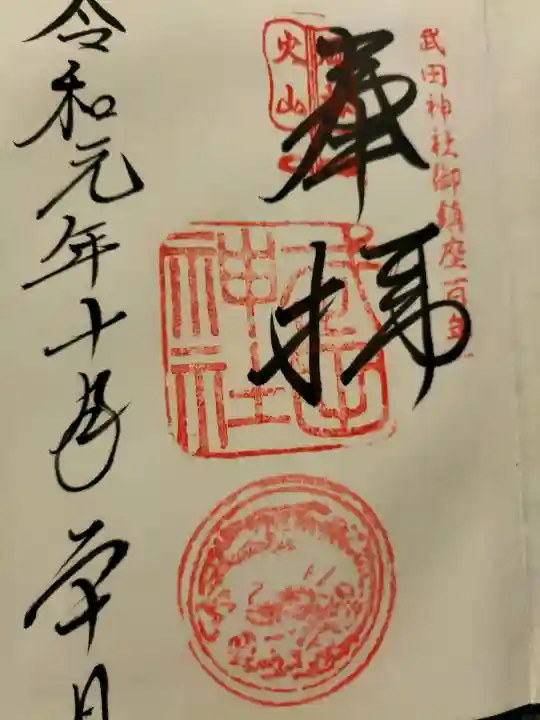 武田神社御鎮座百年
奉拝
風林
火山
武田
神社
令和元年十月廿日